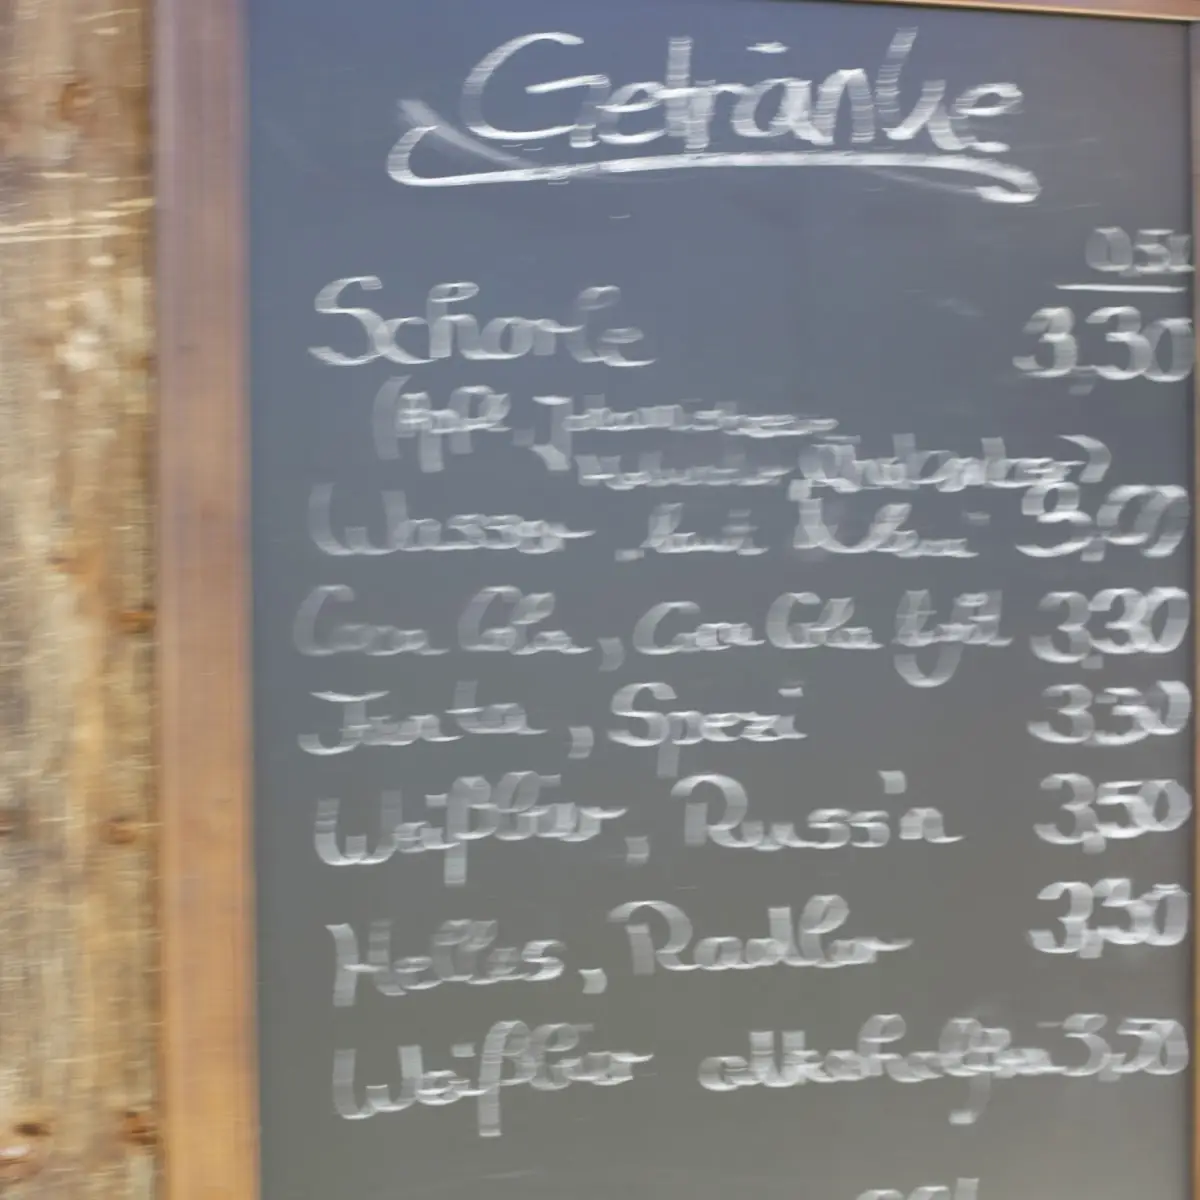 Getränke
0,5l
Schorle 3,30
(Apfel, Johannisbeer
Rhabarber)
Wasser, laut, 3,00
Coca Cola, Coca Cola light 3,30
Fanta, Spezi 3,30
Weißbier, Russ'n 3,50
Helles, Radler 3,30
Weißbier alkoholfrei 3,50